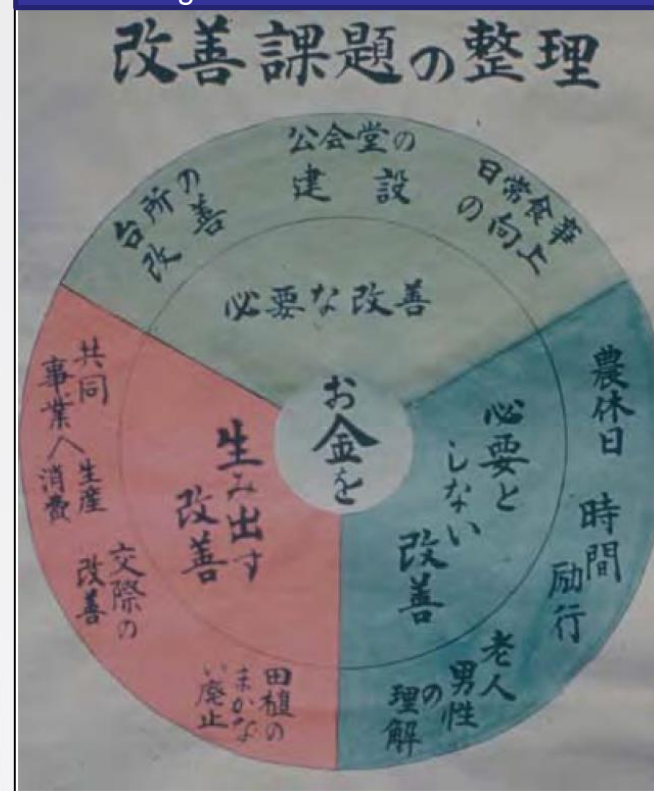 改善課題の整理
台所の
改善
公会堂の
建設
日常食事
の向上
必要な改善
お金を
生み出す
改善
必要と
しない
改善
共同
事業へ
生産
消費
交際の
改善
田植の
まかな
い廃止
農休日
時間
励行
老人
男性
の
理解